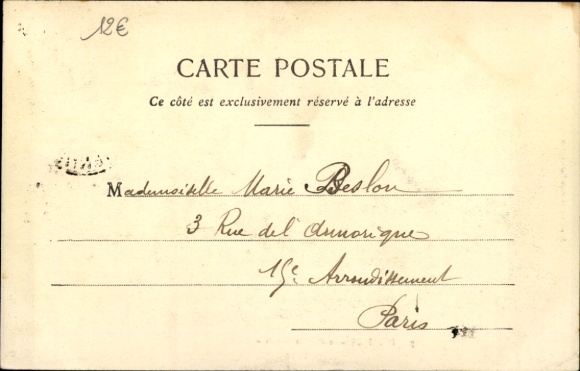 12€
CARTE POSTALE
Ce côté est exclusivement réservé à l'adresse
Mademoiselle Marie Beslon
3 Rue de l'Armorique
15e Arrondissement
Paris